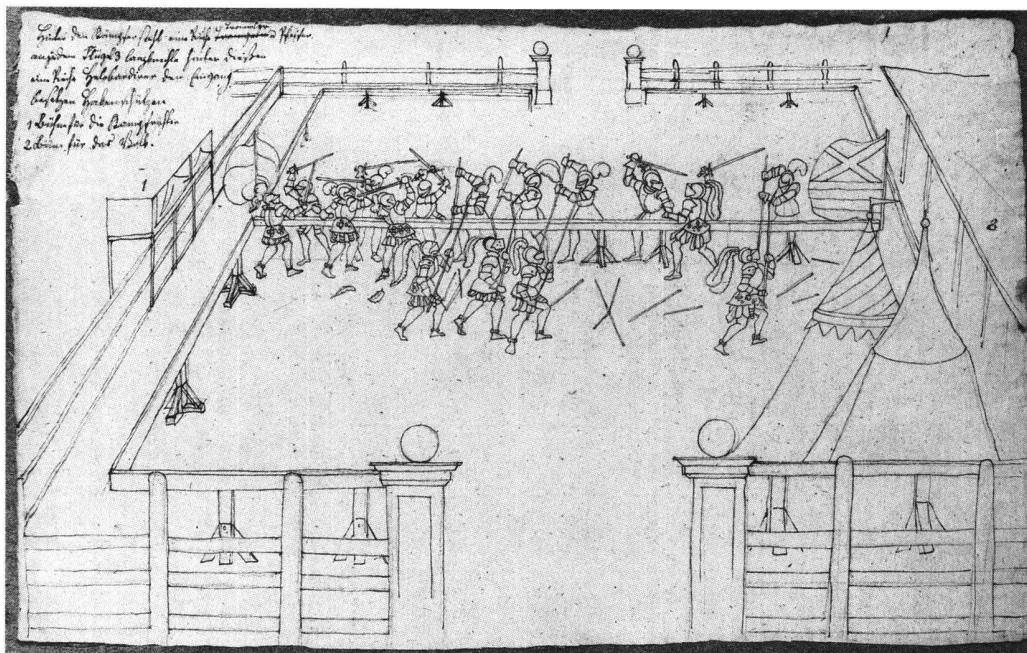 Hinter den Kämpfer steht eine Reihe Trommler Pfeifer.
an jedem Flügel 3 hinter diesen
eine Reihe Helebardierer den Eingang
besetzen Hakenschützen
1 Bühne für die Kampfrichter
2 für das Volk.
1
1